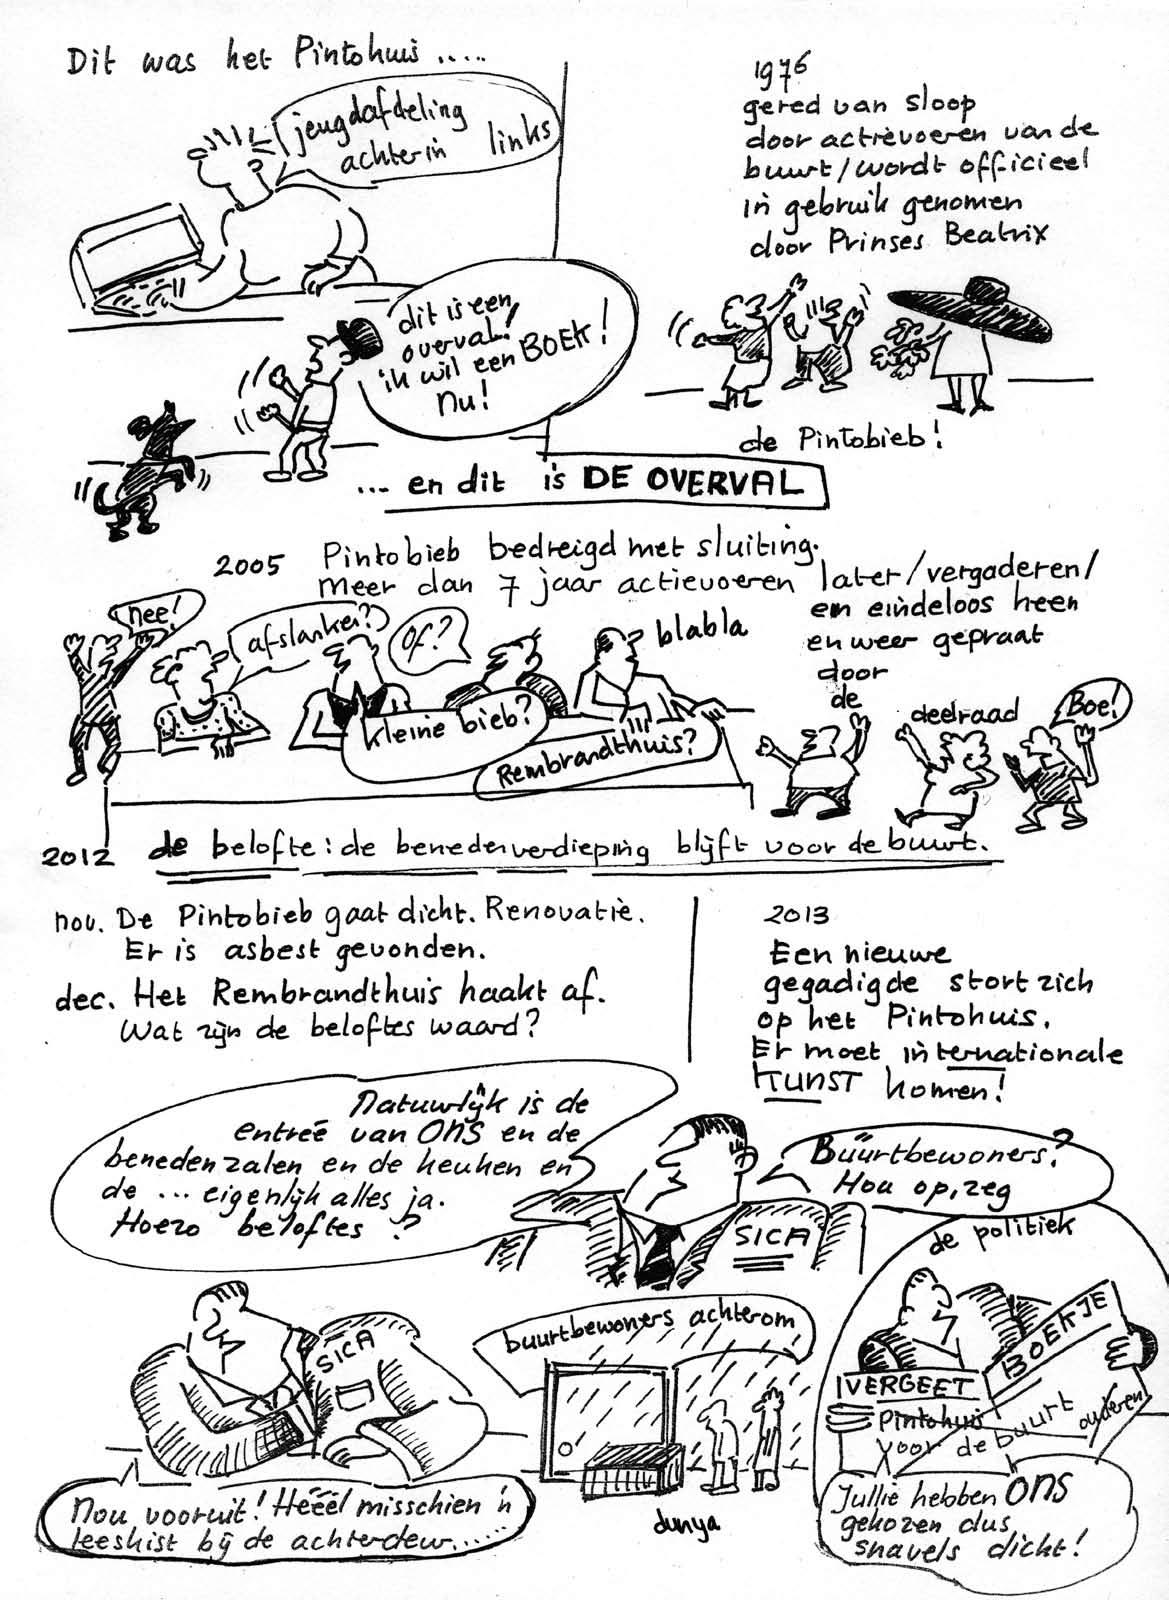 Dit was het Pintohuis .....
jeugdafdeling
achterin links
dit is een
overval!
ik wil een BOEK!
nu!
1976
gered van sloop
door actievoeren van de
buurt/wordt officieel
in gebruik genomen
door Prinses Beatrix
de Pintobieb!
... en dit is DE OVERVAL
2005 Pintobieb bedreigd met sluiting.
Meer dan 7 jaar actievoeren later/vergaderen/
en eindeloos heen
en weer gepraat
door
de
deelraad
nee!
afslanken?
Of?
blabla
kleine bieb?
Rembrandthuis?
Boe!
2012 de belofte: de benedenverdieping blijft voor de buurt.
nov. De Pintobieb gaat dicht. Renovatie.
Er is asbest gevonden.
dec. Het Rembrandthuis haakt af.
Wat zijn de beloftes waard?
2013
Een nieuwe
gegadigde stort zich
op het Pintohuis.
Er moet internationale
KUNST komen!
Natuurlijk is de
entrée van ONS en de
benedenzalen en de keuken en
de ... eigenlijk alles ja.
Hoezo beloftes?
Büürtbewoners?
Hou op, zeg
SICA
SICA
Nou vooruit! Héééél misschien 'n
leeskist bij de achterdeur....
buurtbewoners achterom
dunya
de politiek
VERGEET
BOEKJE
Pintohuis
voor de buurt
ouderen
Jullie hebben ONS
gekozen dus
snavels dicht!